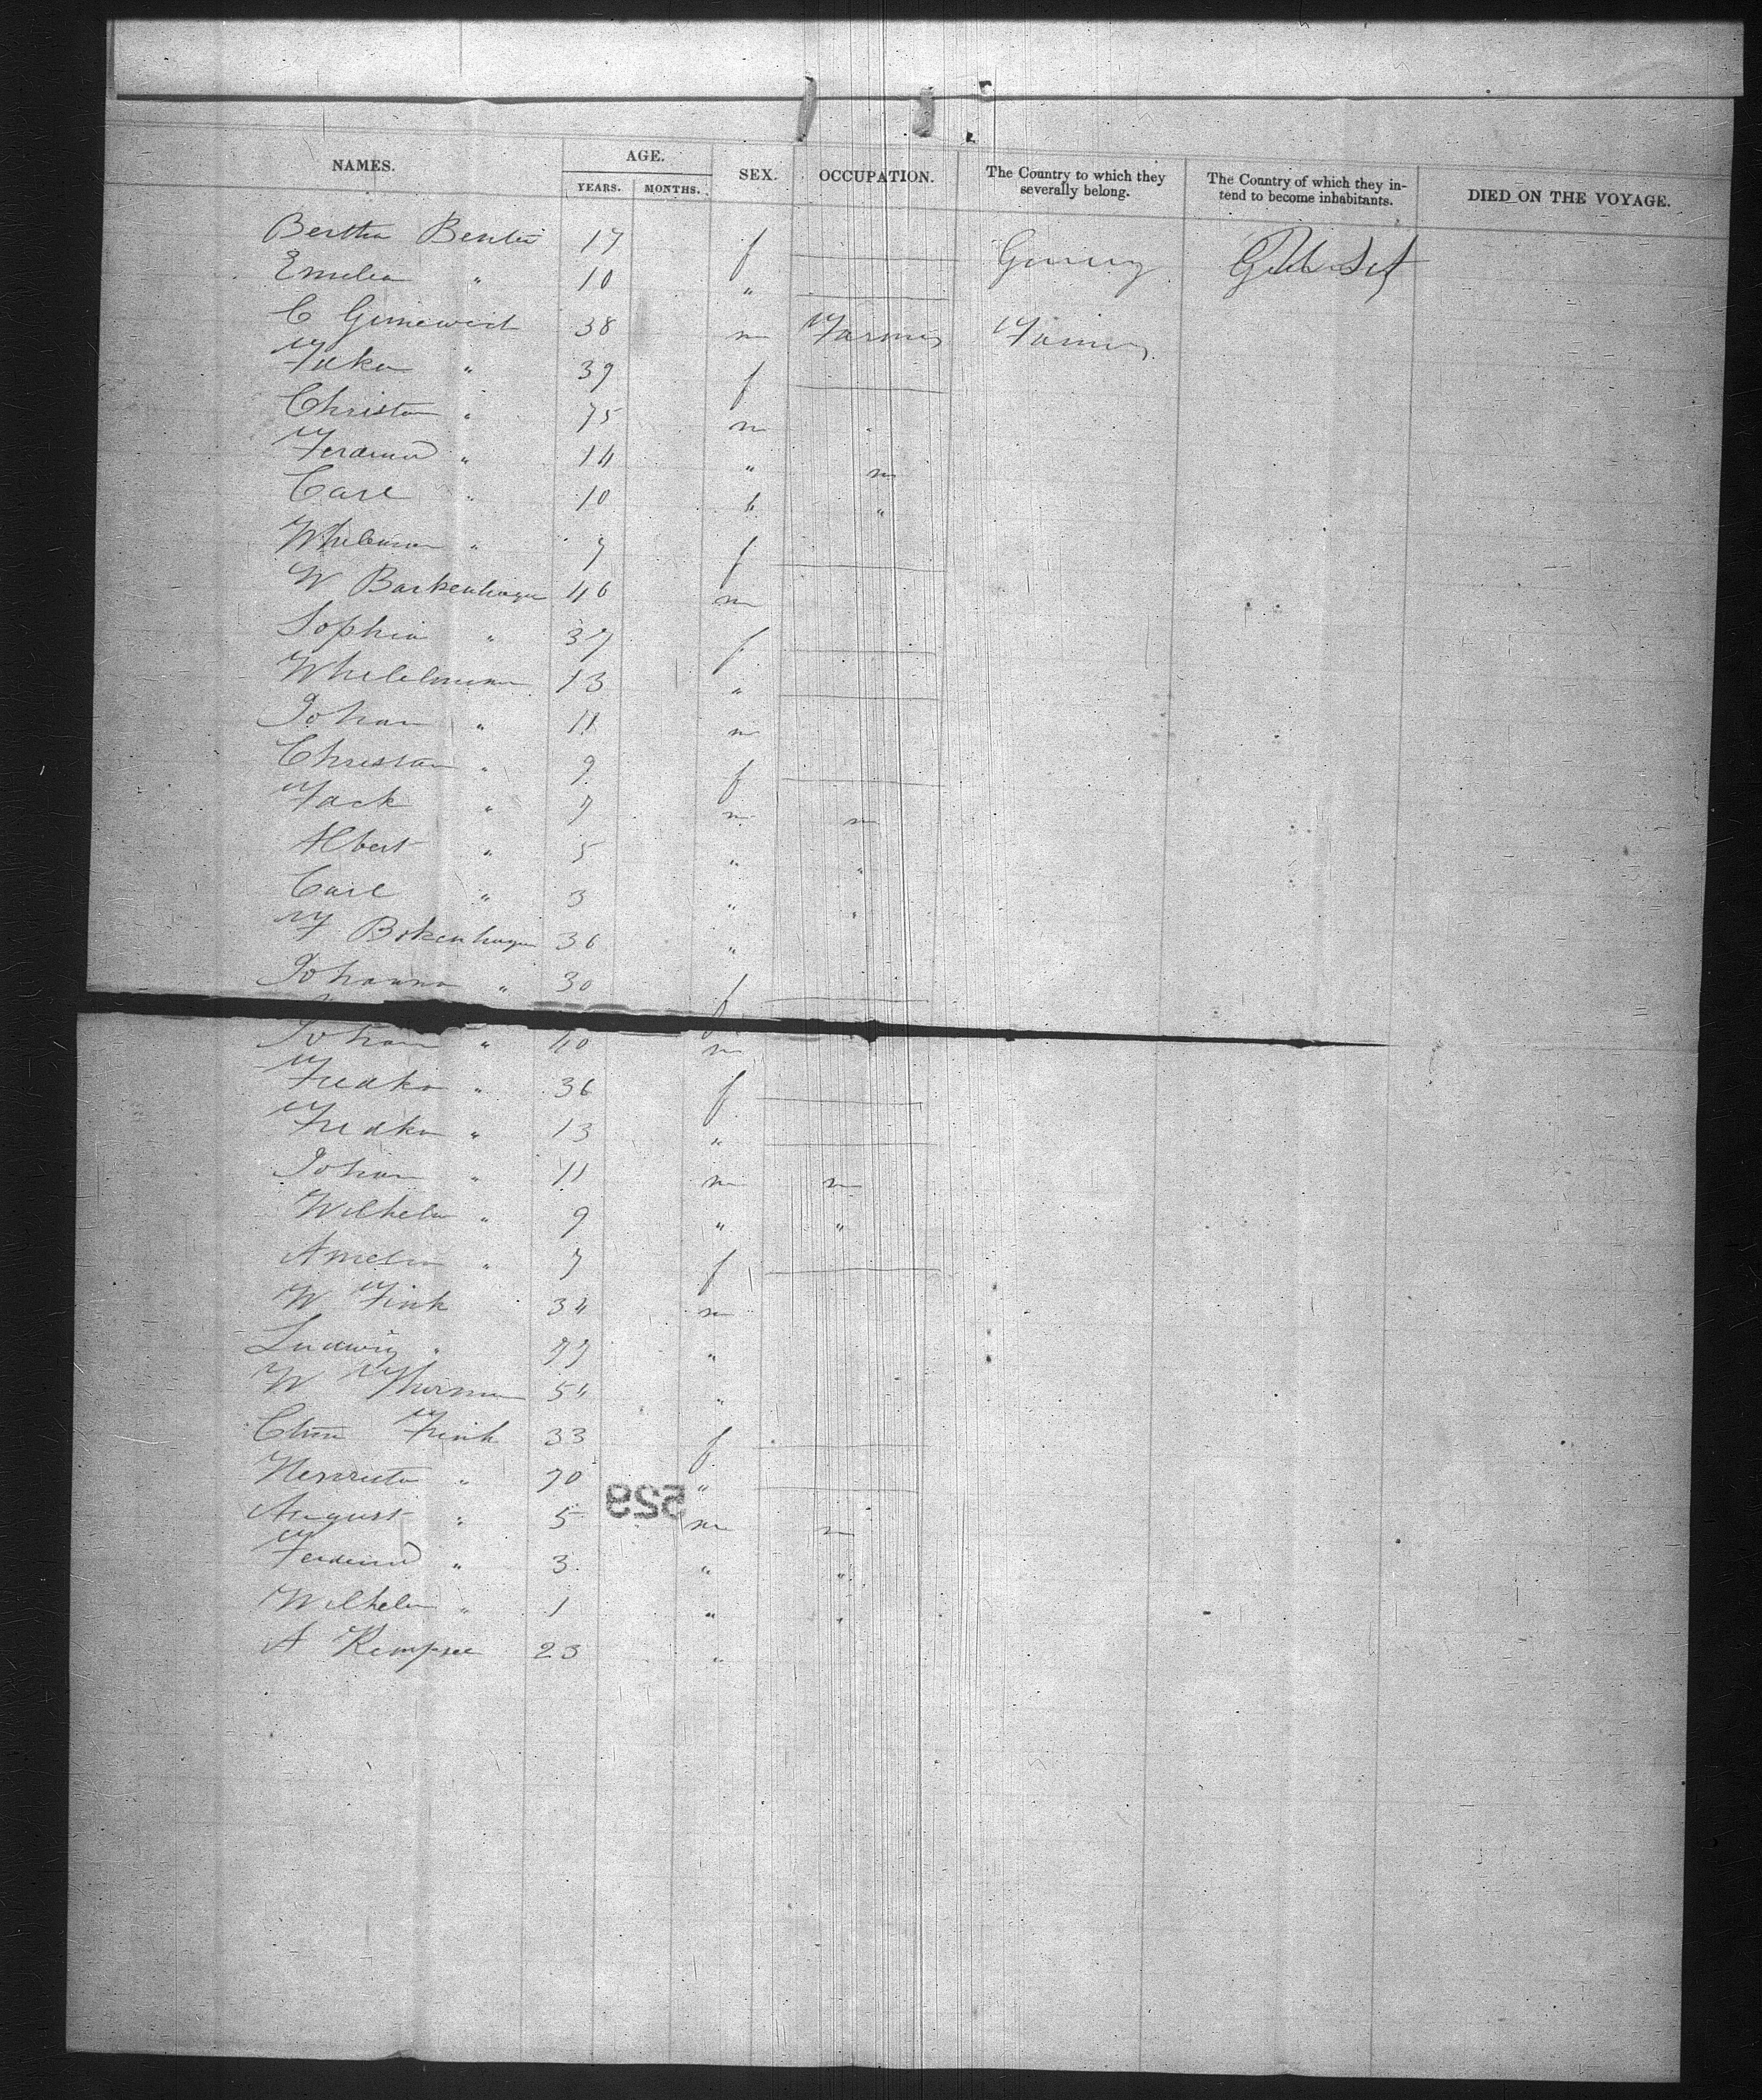 NAMES. AGE. YEARS. MONTHS. SEX. OCCUPATION. The Country to which they severally belong. The Country of which they intend to become inhabitants. DIED ON THE VOYAGE.
Bertha 17 f
Emelia " 10 "
C 38 m Farmer
" 39 f
Christan " 75 m
Ferdinand " 14 " m
Carl " 10 " "
" 7 f
W Barkenhagen 46 m
Sophia " 37 f
13 "
Johan " 11 m
Christan " 9 f
" 7 m m
Albert " 5 " "
Carl " 3 " "
F Bokenhagen 36 "
Johanna " 30 f
Johan " 40 m
Fredka " 36 f
Fredka " 13 "
Johan " 11 m m
Wilhelm " 9 " "
Amelia " 7 f
W Fink 34 m
Ludwig " 77 "
W 54 "
Fink 33 f
Henrieta " 70 "
529
August " 5 m m
Ferdinand " 3 " "
Wilhelm " 1 " "
A 23 "